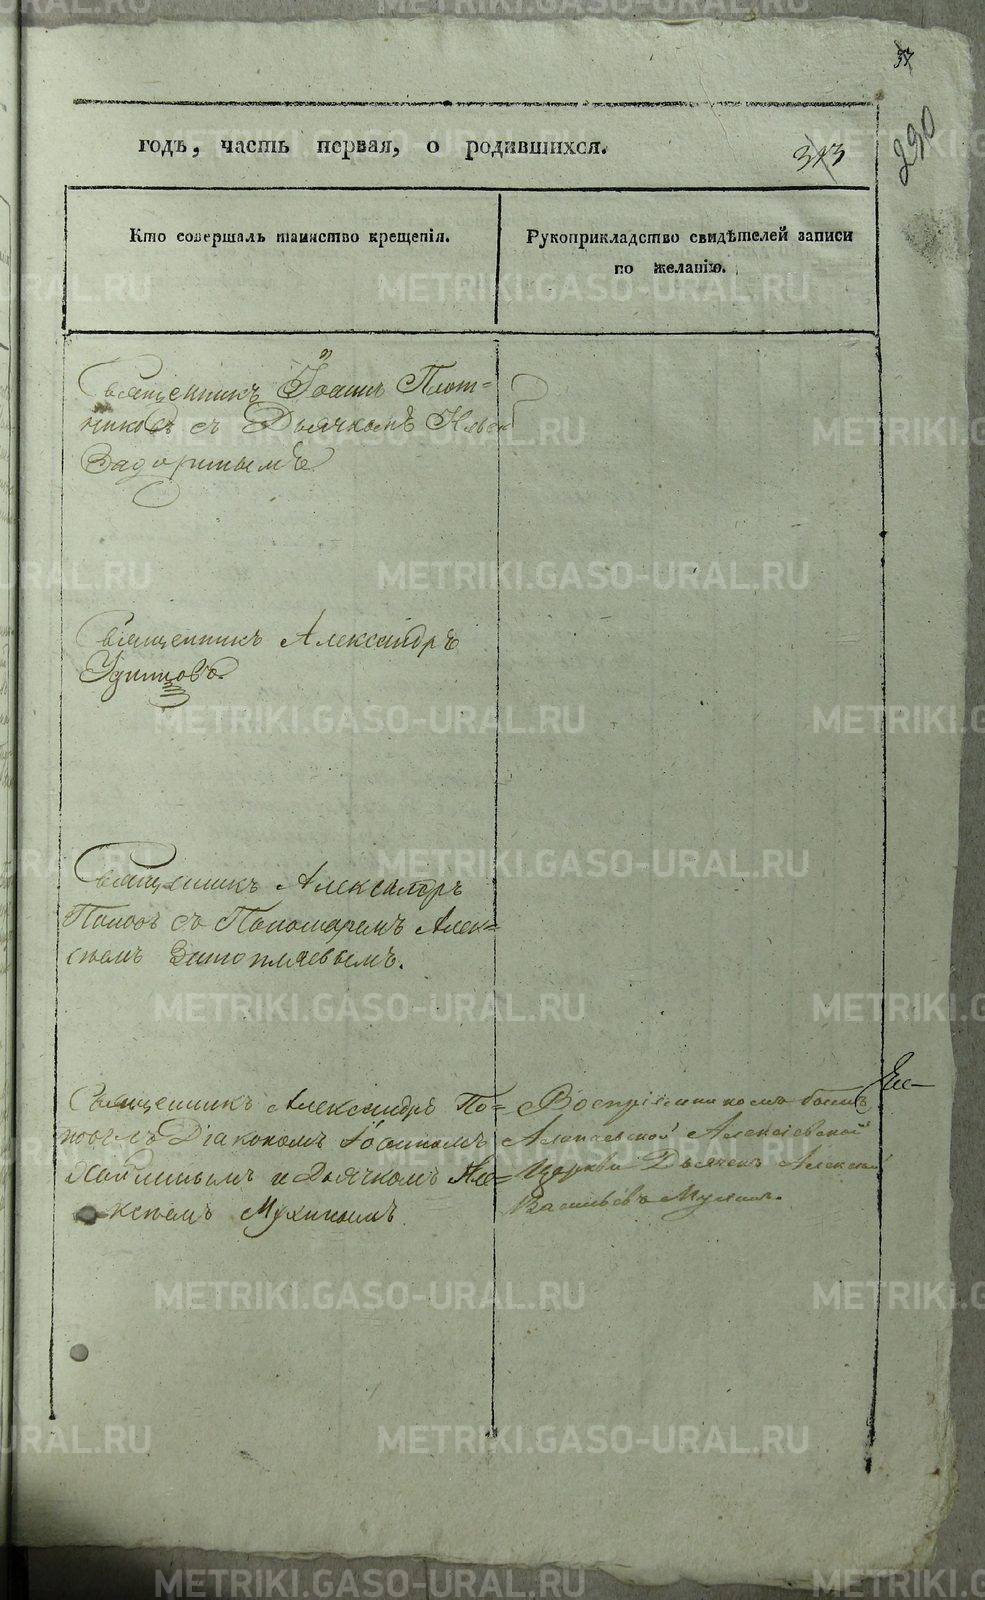 37
290
годъ, часть первая, о родившихся.
313
Кто совершалъ таинство крещенія.
Рукоприкладство свидѣтелей записи
по желанію.
Священникъ Іоаннъ Плот=
никовъ съ Дьячкомъ
Задоринымъ
Священникъ Александръ
Удинцовъ
Священникъ Александръ
Поповъ съ Пономаремъ Алек=
сѣемъ
Священникъ Александръ По=
повъ съ Діакономъ Іоанномъ
и Дьячкомъ Але=
ксѣемъ Мухинымъ
Воспріемникомъ былъ
Алапаевской Алексіевской
Церкви Дьячекъ Алексѣй
Васильевъ Мухинъ.
METRIKI.GASO-URAL.RU